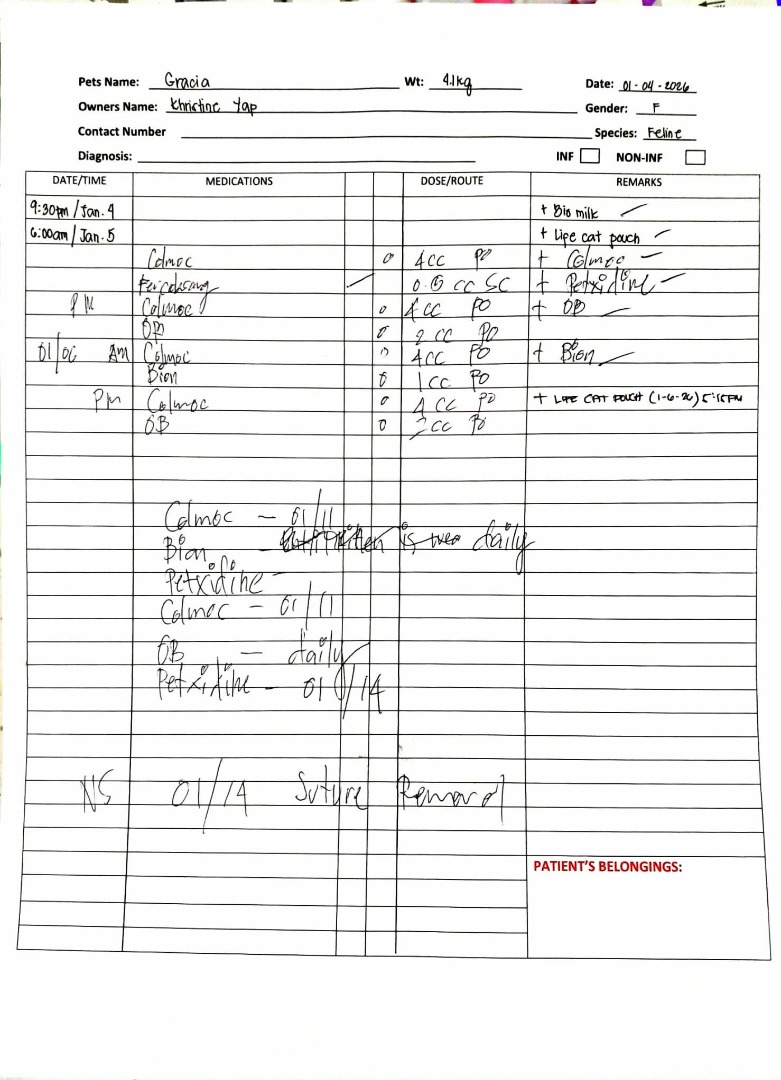 Pets Name: Gracia Wt: 4.1kg Date: 01-04-2026
Owners Name: Khristine Yap Gender: F
Contact Number Species: Feline
Diagnosis: INF NON-INF
DATE/TIME MEDICATIONS DOSE/ROUTE REMARKS
9:30pm / Jan. 4 + Bio milk
6:00am / Jan. 5 + Life cat pouch
Colmoc 0 4cc PO + Colmoc
0.5 cc SC + Petxidine
PM Colmoc 0 4cc PO + OB
OB 0 2 cc PO
01/06 AM Colmoc 0 4cc PO + Bion
Bion 0 1cc PO
PM Colmoc 0 4 cc PO + LIFE CAT POUCH (1-6-26) 5:15PM
OB 0 2cc PO
Colmoc - 01/11
Bion - daily
Petxidine -
Colmoc - 01/11
OB - daily
Petxidine - 01/14
NS 01/14 Suture Removal
PATIENT'S BELONGINGS: